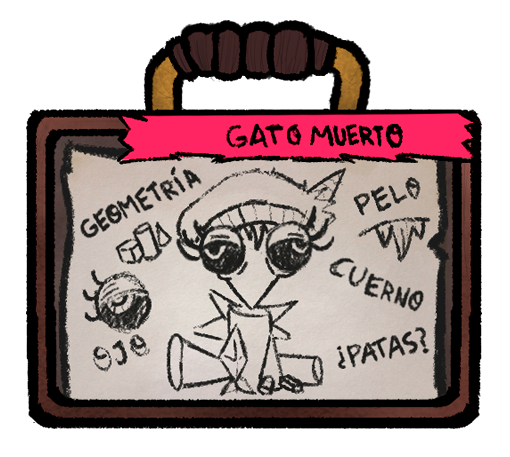 GATO MUERTO
GEOMETRÍA
PELO
CUERNO
OJO
¿PATAS?